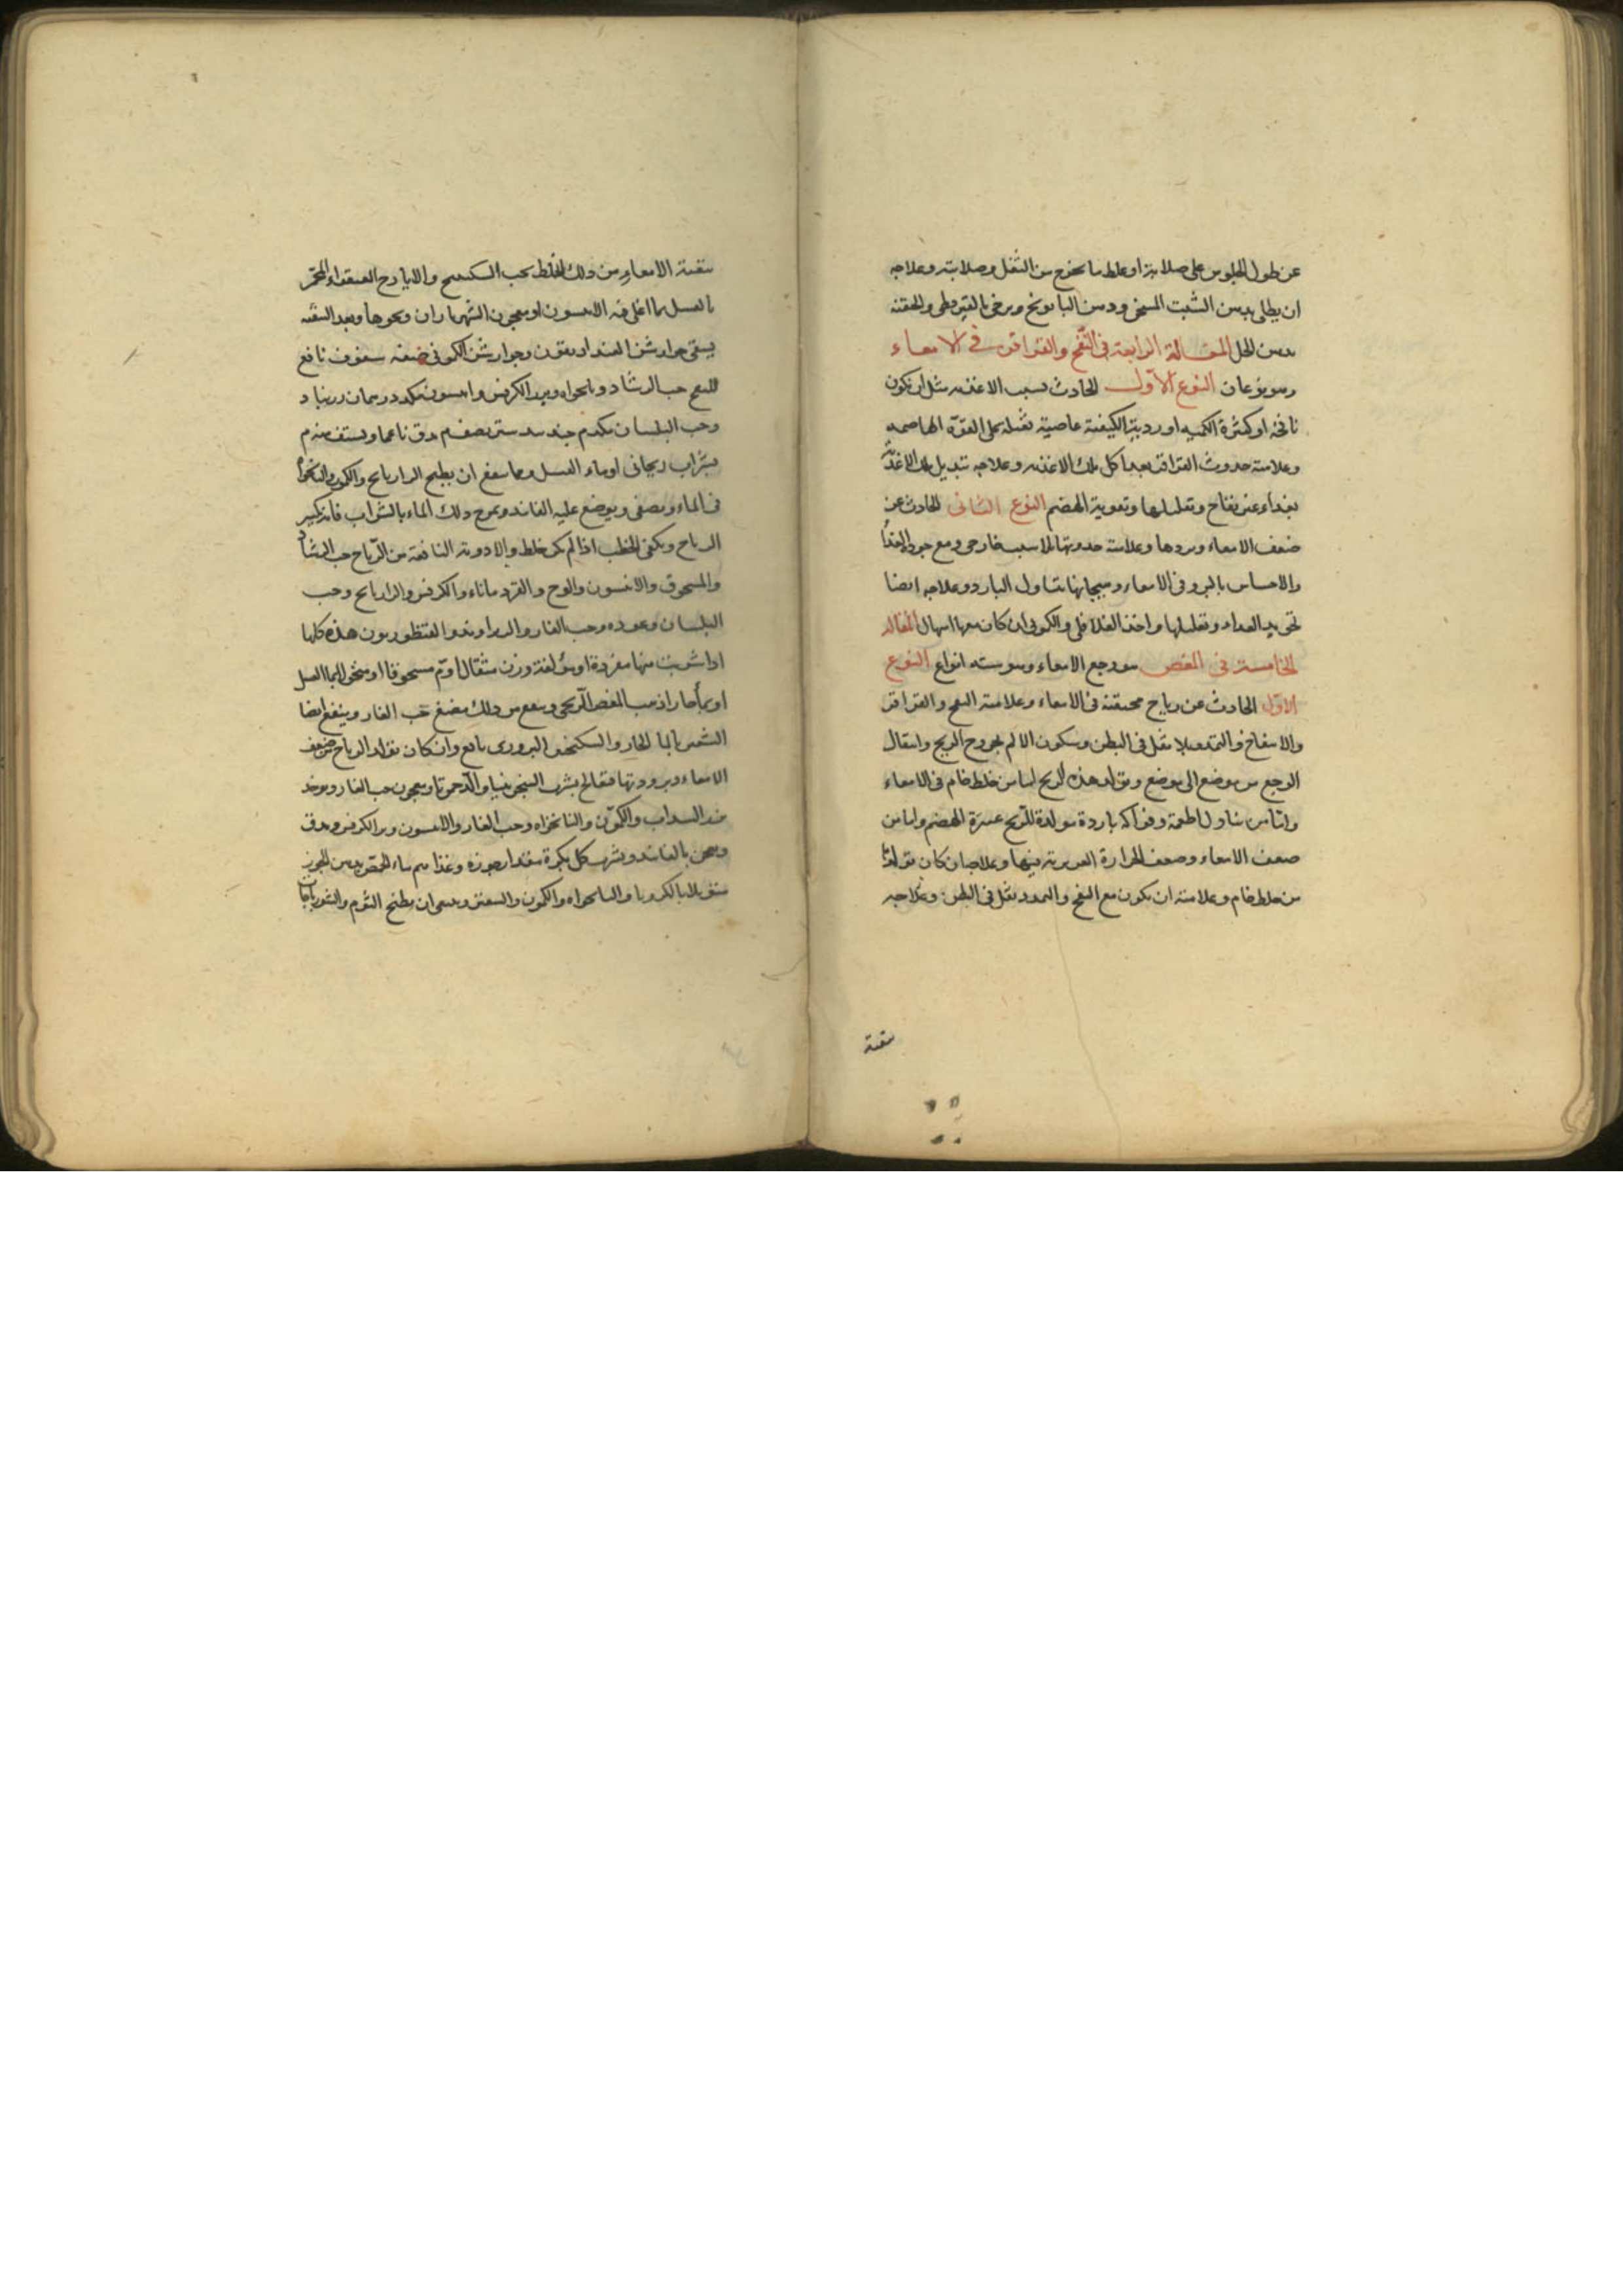 عن طول الجلوس على صلابة او غلظ ما يخرج من الثفل وصلابته وعلاجه
ان يطلى بدهن الشبت المسخن ودهن البابونج ويرخى بالقيروطى والحقنة
بدهن الحل المقالة الرابعة فى النفخ والقراقر فى الامعاء
وهو نوعان النوع الاول الحادث بسبب الاغذيه مثل ان تكون
نافخة او كثيرة الكميه او ردية الكيفية عاصية ثقيلة على القوة الهاضمه
وعلامته حدوث القراقر بعد اكل تلك الاغذيه وعلاجه تبديل تلك الاغذية
بغذاء غير نفاخ وتقليلها وتقوية الهضم النوع الثانى الحادث عن
ضعف الامعاء وبردها وعلامته حدوثها بلا سبب خارجى ومع جودة الغذا
والاحساس بالبرد فى الامعاء وهيجانها بتناول البارد وعلاجه ايضا
تجويد الغداء وتقليلها واخذ الفلافلى والكمونى ان كان معها اسهال المقاله
الخامسة فى المغص هو وجع الامعاء وهو سته انواع النوع
الاول الحادث عن رياح محتقنة فى الامعاء وعلامته النفخ والقراقر
والانتفاخ والتمدد بلا ثقل فى البطن وسكون الالم بخروج الريح وانتقال
الوجع من موضع الى موضع وتولد هذه الريح اما من خلط خام فى الامعاء
واما من تناول اطعمة وفواكه باردة مولدة للريح عسرة الهضم واما من
ضعف الامعاء وضعف الحرارة الغريزية فيها وعلاجها ان كان تولدها
من خلط خام وعلامته ان يكون مع النفخ والتمدد ثقل فى البطن وعلاجه
تنقية
تنقية الامعاء من ذلك الخلط بحب السكبينج والايارج الفيقرا المخمر
بالعسل بما اغلى فيه الانيسون او معجون الشهرياران ونحوها وبعد التنقيه
يسقى جوارشن الفنداديقون وجوارشن الكمونى صفة سفوف نافع
للنفخ حب الرشاد ونانخواه وبزر الكرفس وانيسون مكد درهمان زرنباد
وحب البلسان مكدم جندبيدستر نصف م يدق ناعما ويستف منه م
بشراب ريحانى او ماء العسل ومما ينفع ان يطبخ الرازيانج والكمون والنانخواه
فى الماء ويصفى ويوضع عليه الفانيد ويمزج ذلك الماء بالشراب فانه يكسر
الرياح ويكفى الخطب اذا لم يكن خلط والادوية النافعة من الرياح حب الرشاد
والمسحوق والانيسون والوج والقردمانا والكرفس والرازيانج وحب
البلسان وعوده وحب الغار والزراوند والقنطوريون هذه كلها
اذا شربت منها مفردة او مؤلفة وزن مثقال او م مسحوقا او منخولا بما العسل
او بماء حار اذهب المغص الريحى وينفع من ذلك مضغ حب الغار وينفع ايضا
بالما الحار والسكنجبين البزورى نافع وان كان تولد الرياح من ضعف
الامعاء وبرودتها فعالج بشرب السنجرينيا والدحمرثا ومعجون حب الغار ويوخذ
السداب والكمون والنانخواه وحب الغار والانيسون وبزر الكرفس ويدق
ويعجن بالفانيد ويشرب كل بكرة مقدار جوزه وغذاهم ماء الحمص بدهن الجوز
متوبلا بالكرويا والنانخواه والكمون والسعتر وينبغى ان يطبخ الثوم والشورباجات